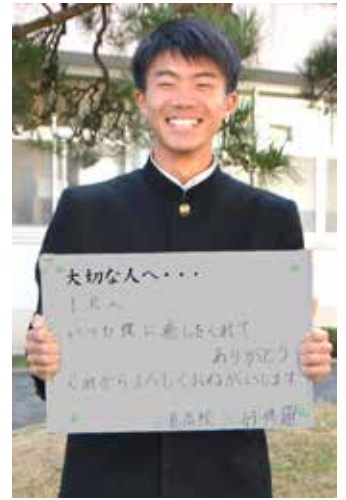 大切な人へ・・・
いつも僕に癒しをくれて
ありがとう
これからもよろしくおねがいします
高校